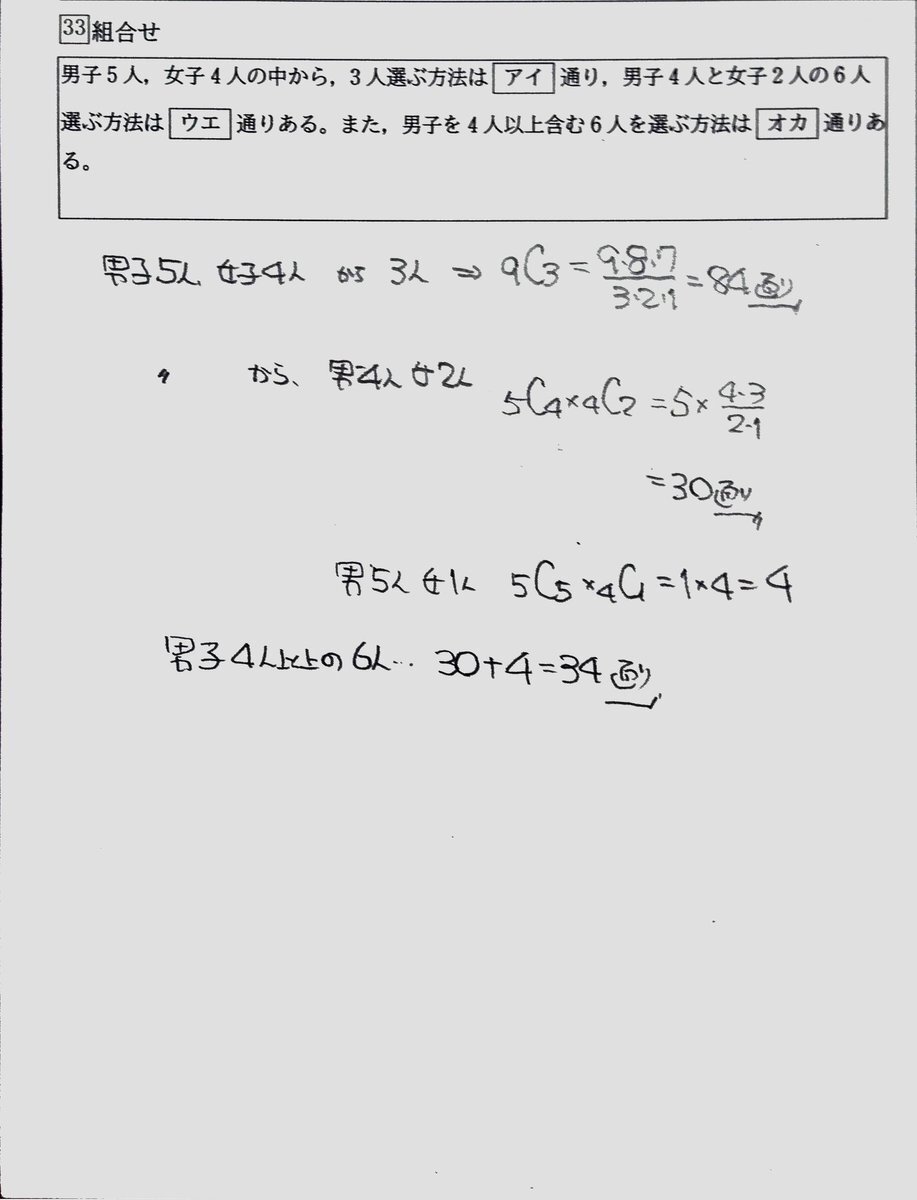 33 組合せ
男子5人，女子4人の中から，3人選ぶ方法は アイ 通り，男子4人と女子2人の6人
選ぶ方法は ウエ 通りある。また，男子を4人以上含む6人を選ぶ方法は オカ 通りあ
る。
男子5人 女子4人 から 3人 ⇒ 9C3 = 9・8・7/3・2・1 = 84通り
〃 から、男4人女2人 5C4×4C2 = 5×4・3/2・1
=30通り
男5人女1人 5C5×4C1=1×4=4
男子4人以上の6人… 30+4=34通り